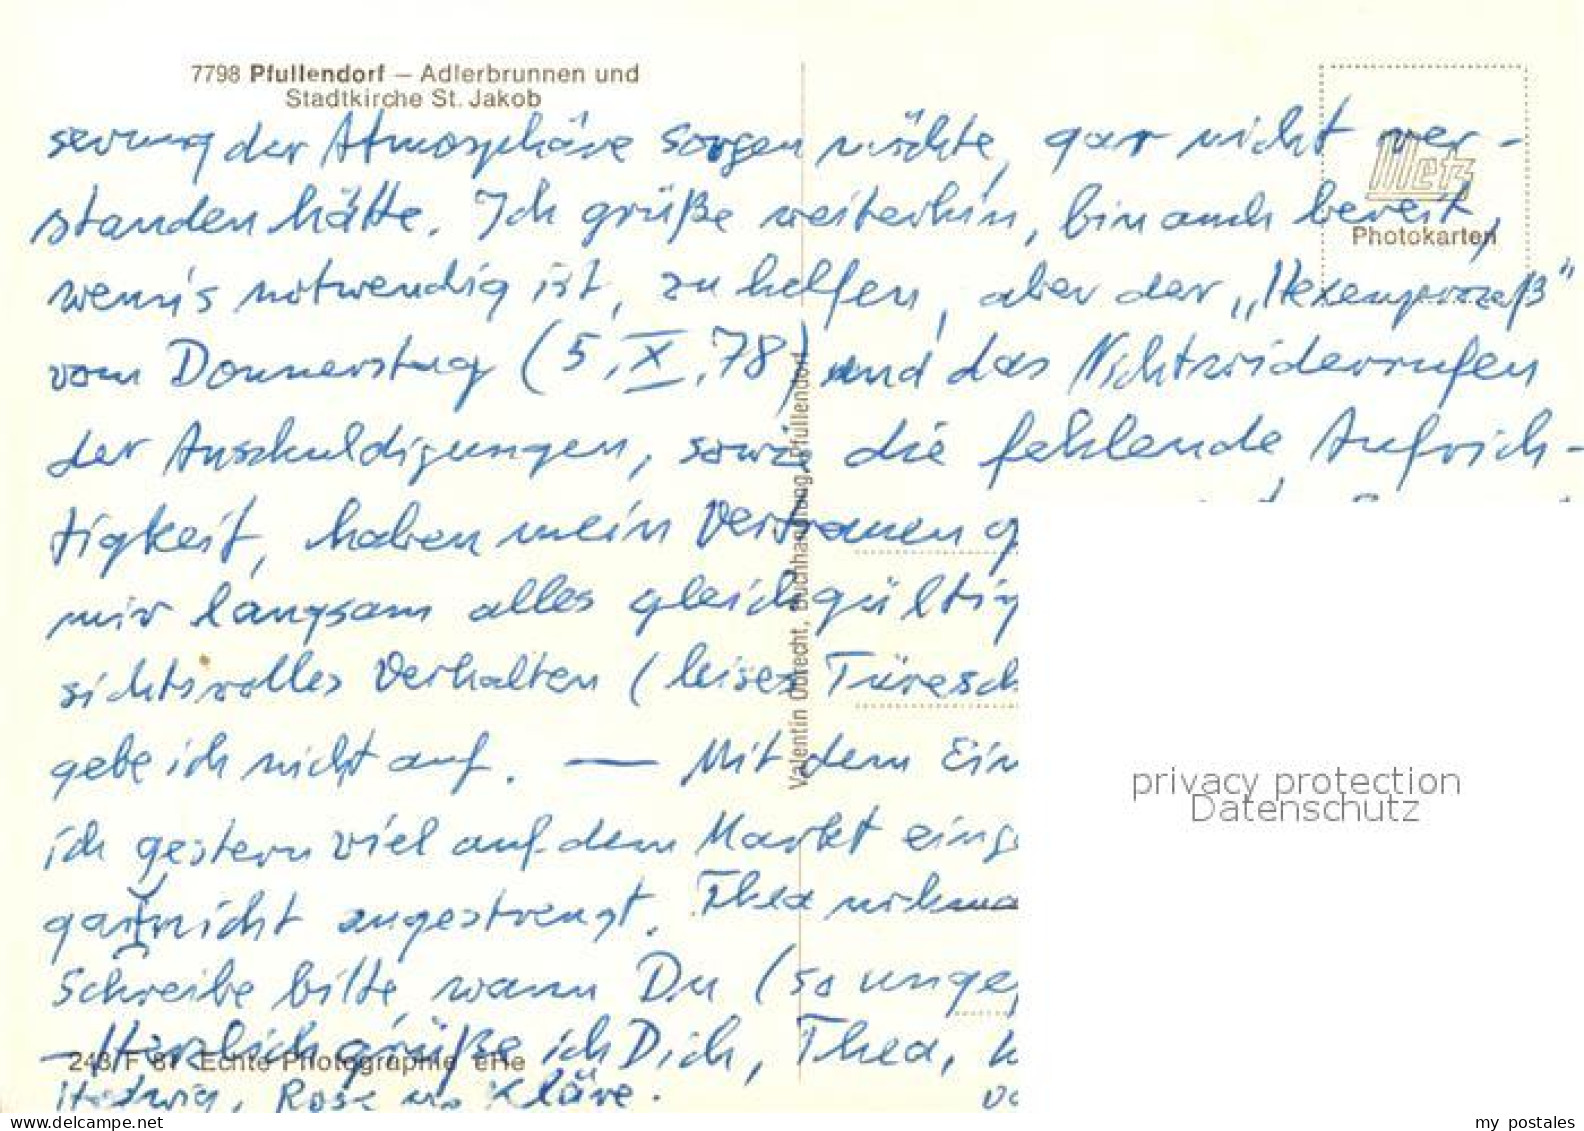 7798 Pfullendorf — Adlerbrunnen und
Stadtkirche St. Jakob
serung der Atmosphäre sorgen möchte, gar nicht ver-
standen hätte. Ich grüße weiterhin, bin auch bereit,
wenn's notwendig ist, zu helfen, aber der „Hexenprozeß"
vom Donnerstag (5. X. 78) und das Nichtwiderrufen
der Anschuldigungen, sowie die fehlende Aufrich-
tigkeit, haben mein Vertrauen
mir langsam alles gleichgültig
sichtsvolles Verhalten (leises Türesch
gebe ich nicht auf. — Mit dem Ein
ich gestern viel auf dem Markt
garnicht angestrengt. Thea
Schreibe bitte, wann Du (so
— Herzlich grüße ich Dich, Thea,
Hedwig, Rose u. Kläre.
Metz
Photokarten
Valentin Obrecht, Buchhandlung, Pfullendorf
243/F 81 Echte Photographie eHe
privacy protection
Datenschutz
delcampe.net
my_postales